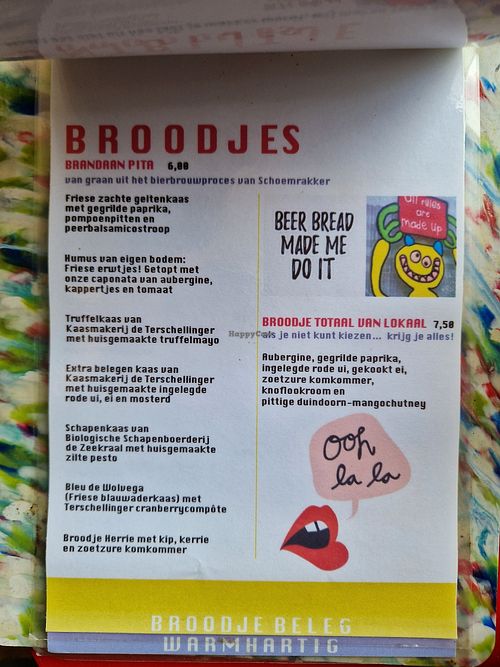 BROODJES
BRANDRAN PITA 6,00
van graan uit het bierbrouwproces van Schoemrakker
Friese zachte geitenkaas
met gegrilde paprika,
pompoenpitten en
peerbalsamicostroop
Humus van eigen bodem:
Friese erwtjes! Getopt met
onze caponata van aubergine,
kappertjes en tomaat
Truffelkaas van
Kaasmakerij de Terschellinger
met huisgemaakte truffelmayo
Extra belegen kaas van
Kaasmakerij de Terschellinger
met huisgemaakte ingelegde
rode ui, ei en mosterd
Schapenkaas van
Biologische Schapenboerderij
de Zeekraal met huisgemaakte
zilte pesto
Bleu de Wolvega
(Friese blauwaderkaas) met
Terschellinger cranberrycompôte
Broodje Herrie met kip, kerrie
en zoetzure komkommer
BEER BREAD
MADE ME
DO IT
all rules
are
made up
BROODJE TOTAAL VAN LOKAAL 7,50
als je niet kunt kiezen... krijg je alles!
Aubergine, gegrilde paprika,
ingelegde rode ui, gekookt ei,
zoetzure komkommer,
knoflookroom en
pittige duindoorn-mangochutney
ooh
la la
BROODJE BELEG
WARMHARTIG
HappyCow